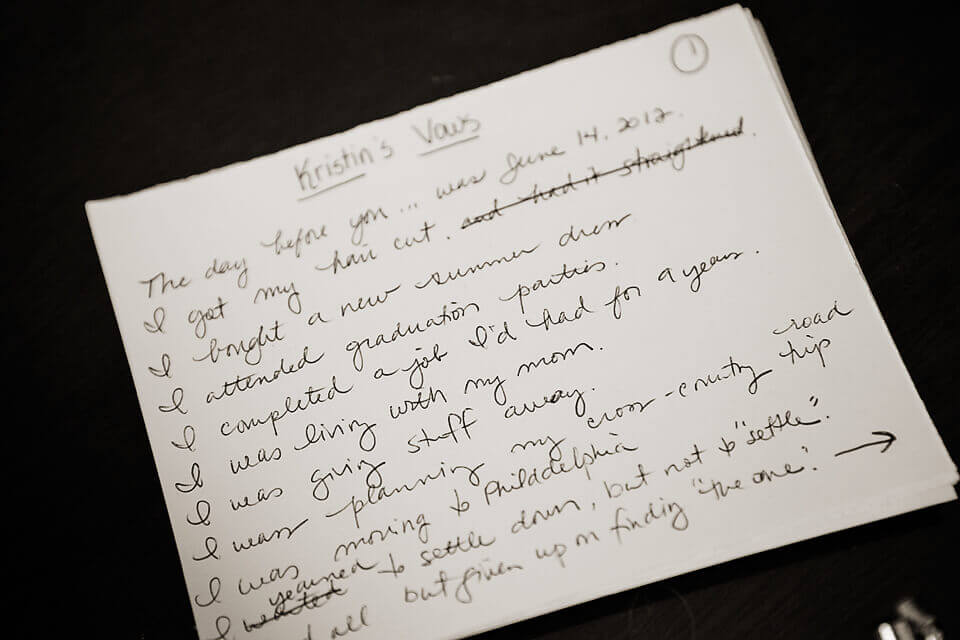 1
Kristin's Vows
The day before you... was June 14. 2012.
I got my hair cut. and had it straightened.
I bought a new summer dress
I attended graduation parties.
I completed a job I'd had for a year.
I was living with my mom.
I was giving stuff away.
road
I was planning my cross-country trip
I was moving to Philadelphia
yearned
I wanted to settle down, but not to "settle".
all but given up on finding "the one". →